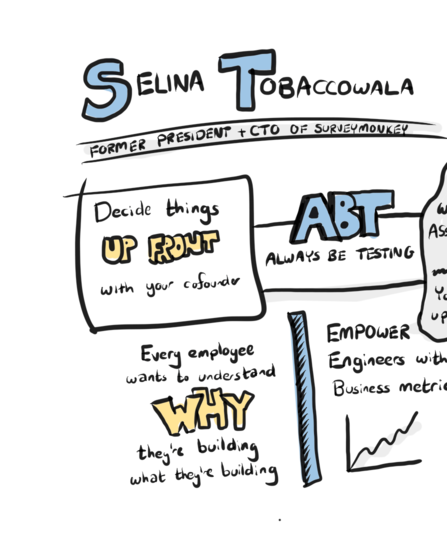 SELINA TOBACCOWALA
FORMER PRESIDENT + CTO OF SURVEYMONKEY
Decide things
UP FRONT
with your cofounder
ABT
ALWAYS BE TESTING
Every employee
wants to understand
WHY
they're building
what they're building
EMPOWER
Engineers with
Business metric